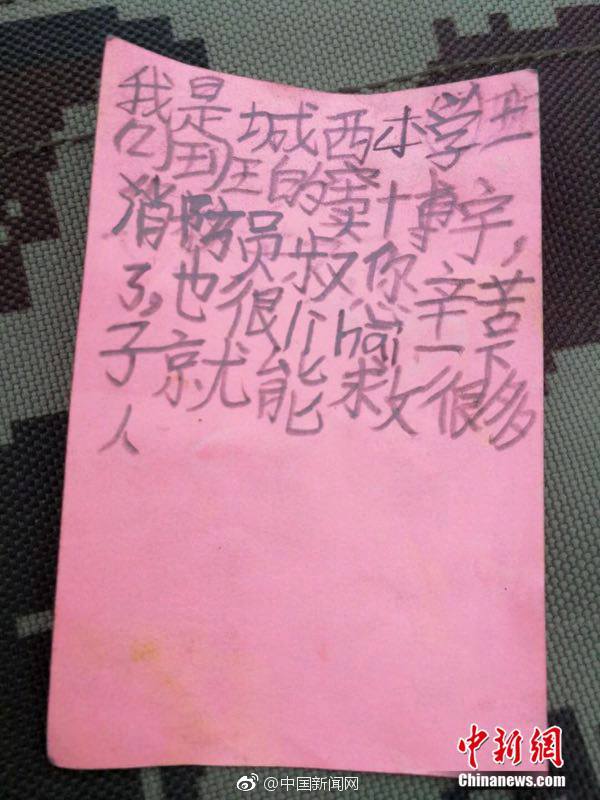 我是城西小学
班的窦博宇,
消防员叔您辛苦
了,也很hai一下
子就能救很多
人
@中国新闻网
中新網
Chinanews.com